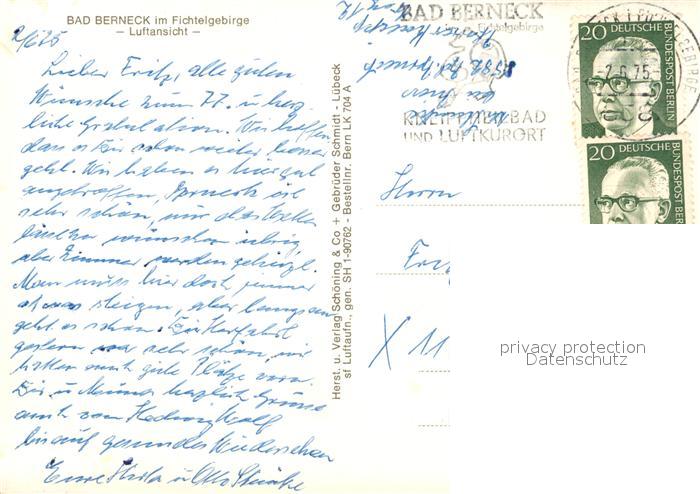 BAD BERNECK im Fichtelgebirge
– Luftansicht –
2/6 75
Lieber Fritz, alle guten
Wünsche zum 77. u herz-
liche Gratulation. Wir hoffen
dass es Dir schon wieder besser
geht. Wir haben es hier gut
angetroffen, Berneck ist
sehr schön, nur das Wetter
lässt zu wünschen übrig
aber Zimmer werden geheizt.
Man muss hier doch immer
etwas steigen, aber langsam
geht es schon. Die Herfahrt
gestern war sehr schön, wir
hatten auch gute Plätze vorn.
Dir u Minna herzlich Grüsse
auch von Hedwig Wolf
bis auf gesundes Wiedersehen
Eure u Otto
Herst. u. Verlag Schöning & Co + Gebrüder Schmidt – Lübeck
sf Luftaufn., gen. SH 1-90762 – Bestellnr. Bern LK 704 A
BAD BERNECK
Fichtelgebirge
KNEIPPHEILBAD
UND LUFTKURORT
2.6.75
20 DEUTSCHE
BUNDESPOST BERLIN
20 DEUTSCHE
BUNDESPOST BERLIN
Herrn
X 11
privacy protection
Datenschutz